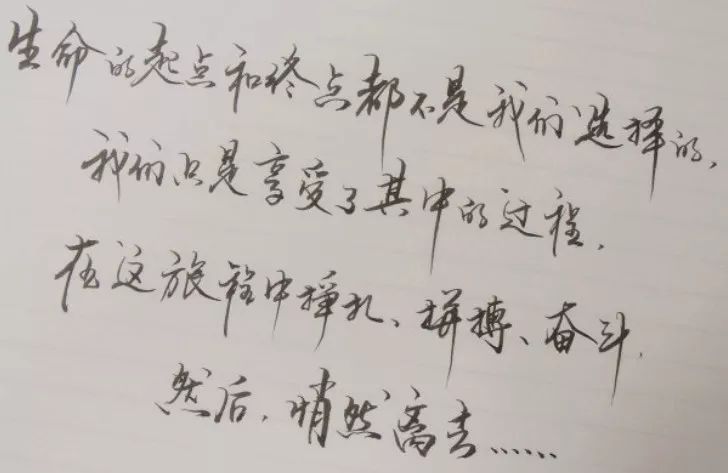 生命的起点和终点都不是我们选择的,
我们只是享受了其中的过程.
在这旅程中挣扎、拼搏、奋斗.
然后.悄然离去......